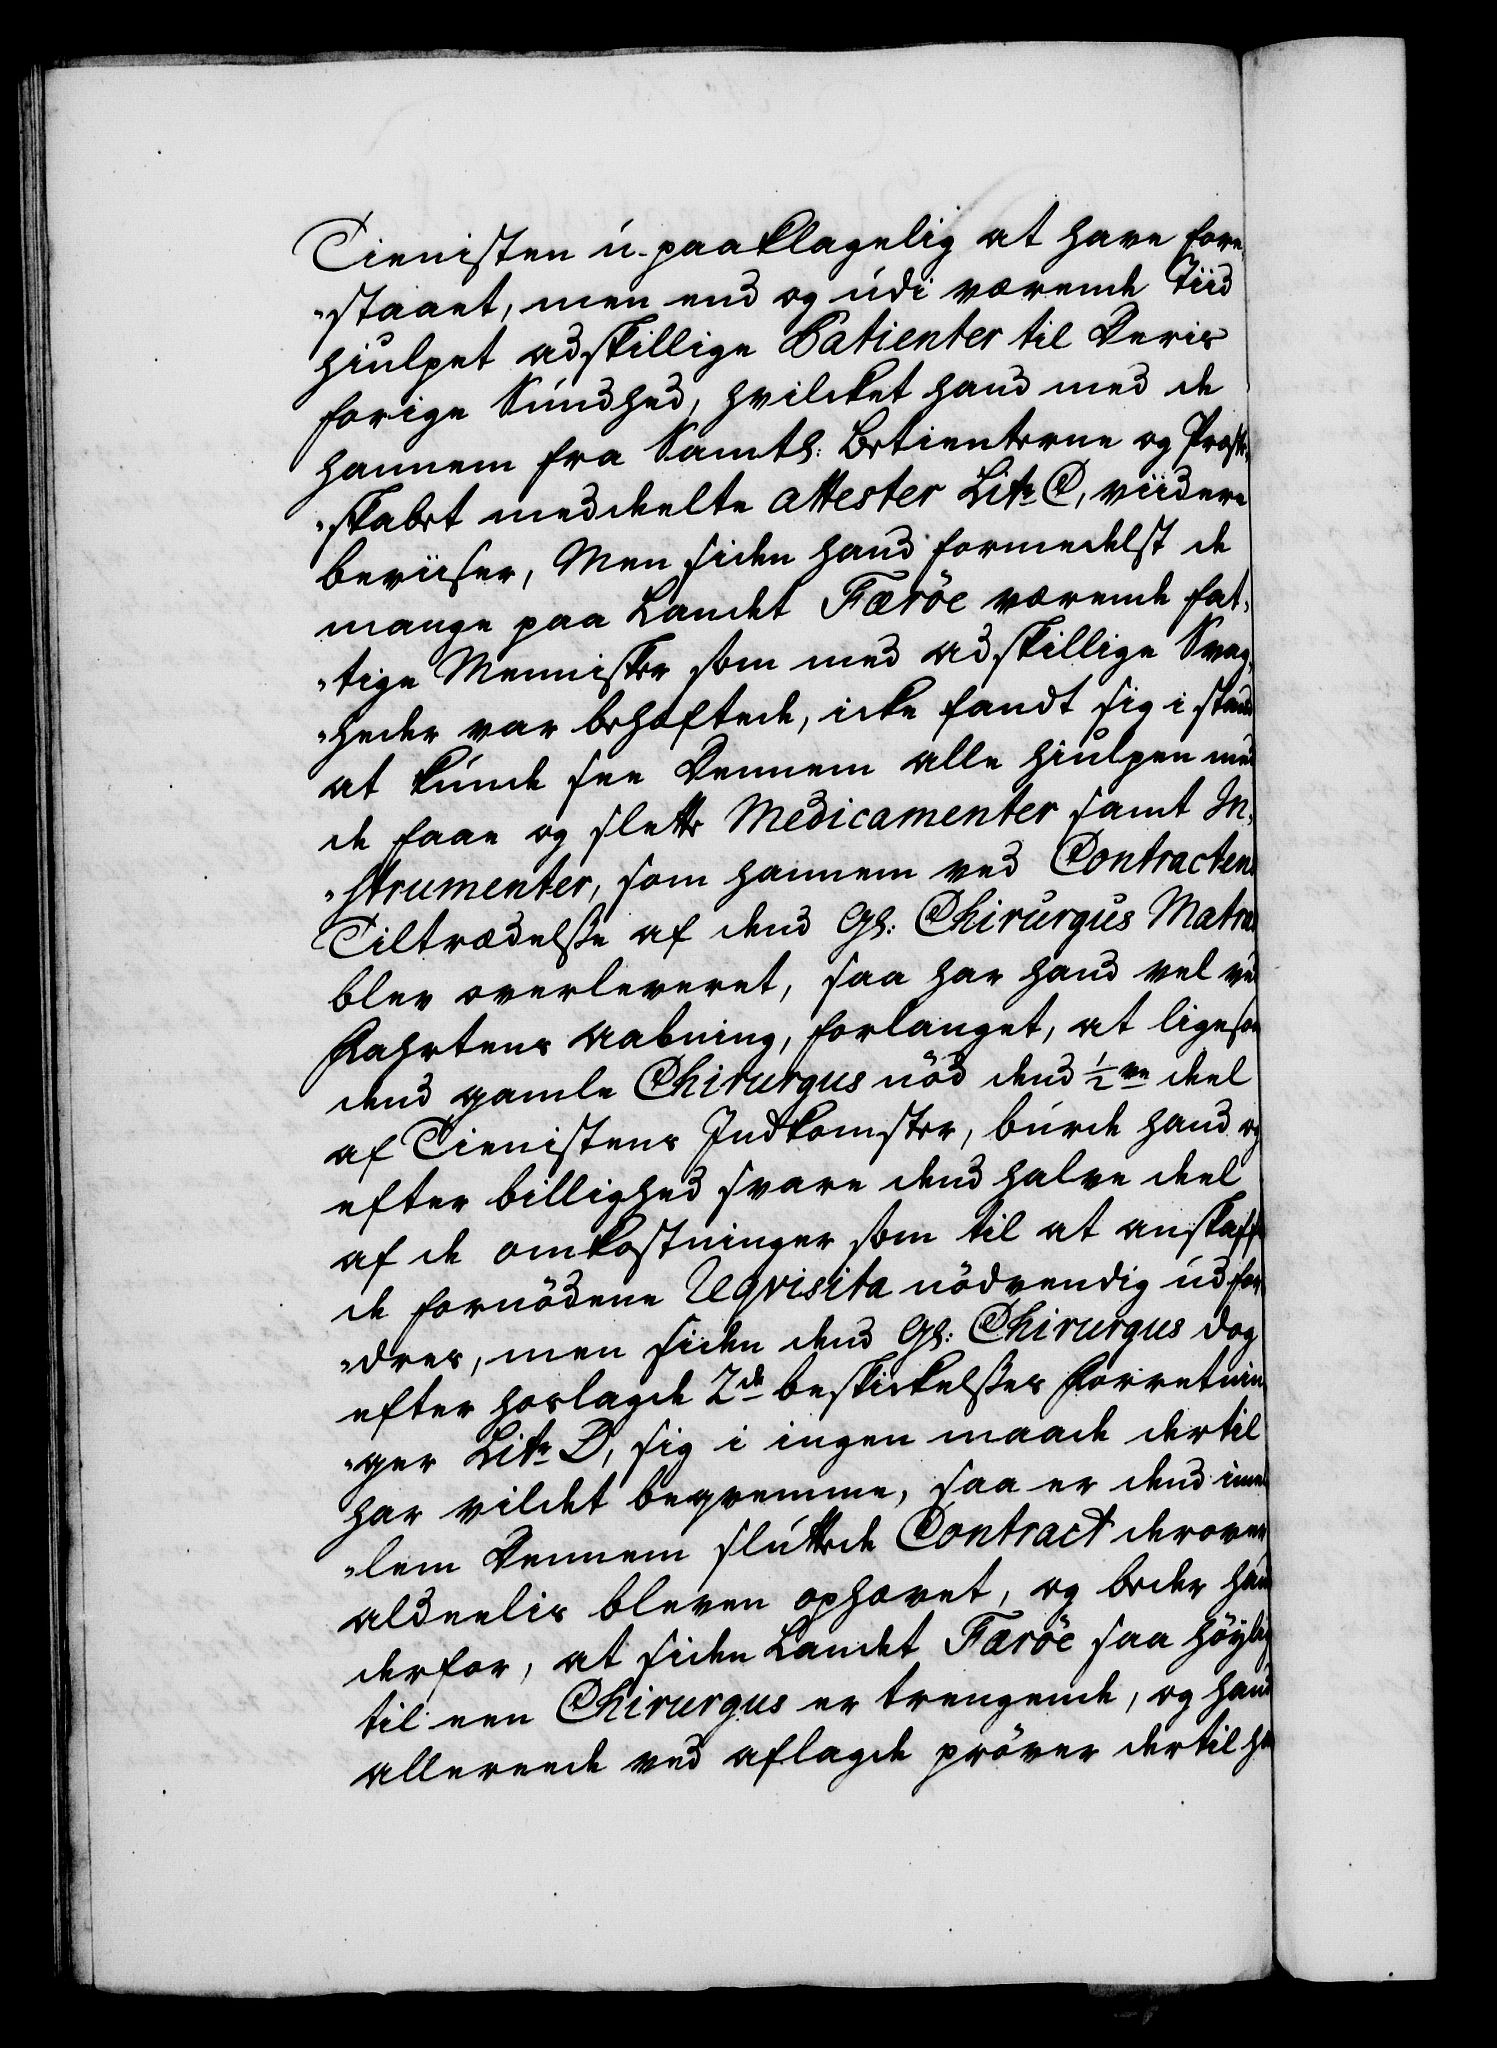 Tienisten u-paaklagelig at have fore„
„staaet, men end og udi værende Tiid
hiulpet adskillige Patienter til Deris
forige Sundhed, hvilcket hand med de
hannem fra Samtl: Betienterne og Præste„
„skabet meddeelte attester Litr C, viidere
beviiser, Men siden hand formedelst de
mange paa Landet Færöe værende fat„
„tige Mennisker som med adskillige Svag„
„heder var behæftede, icke fandt sig i stand
at kunde see Dennem alle hiulpen med
de faae og slette Medicamenter samt In„
„strumenter, som hannem ved Contractens
Tiltrædelsse af dend Gl: Chirurgus Matras
blev overleveret, saa har hand vel ved
Fahrtens Aabning, forlanget, at ligesom
dend gamle Chirurgus nöd dend ½ve deel
af Tienistens Indkomster, burde hand og
efter billighed svare dend halve deel
af de omkostninger som til at anskaffe
de fornödene Reqvisita nödvendig udfor„
„dres, men siden dend Gl: Chirurgus dog
efter hoslagde 2de beskickelsses Forretnin„
„ger Litr D, sig i ingen maade dertil
har vildet beqvemme, saa er dend imel„
„lem Dennem sluttede Contract derover
aldeelis bleven ophævet, og beder hand
derfor, at siden Landet Færöe saa höylig
til een Chirurgus er trengende, og hand
allereede ved aflagde pröver dertil ha